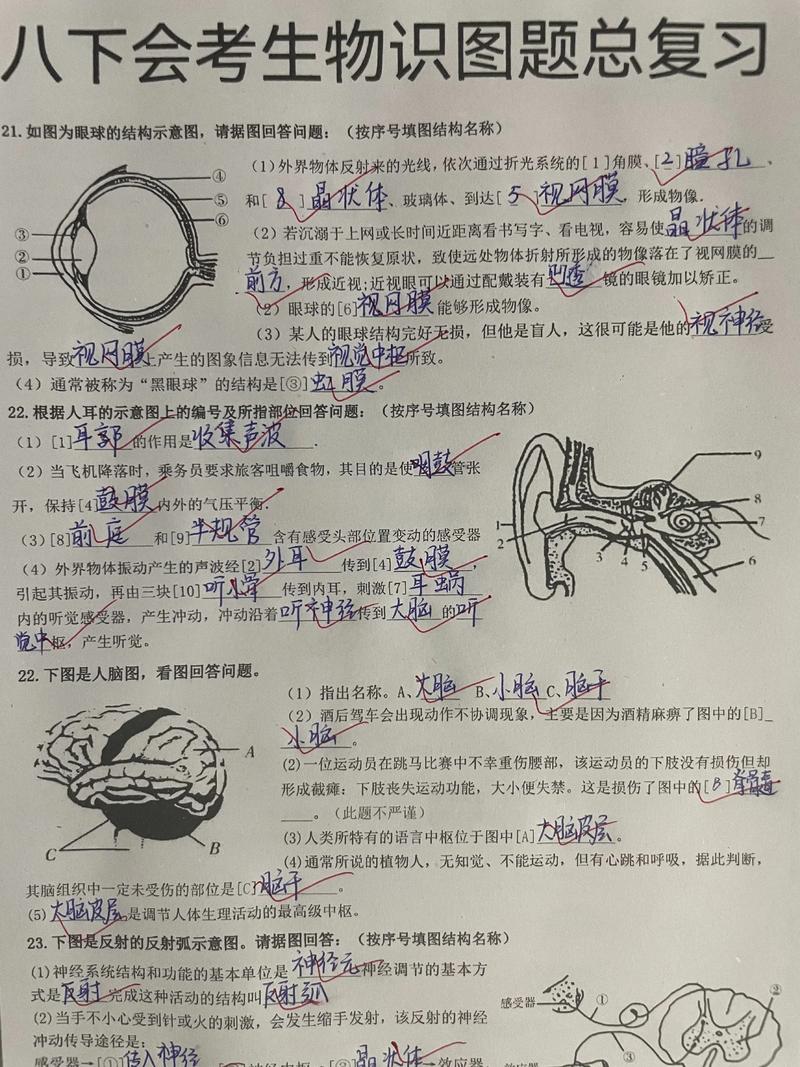 八下会考生物识图题总复习
21.如图为眼球的结构示意图，请据图回答问题：（按序号填图结构名称）
(1)外界物体反射来的光线，依次通过折光系统的[1]角膜、[2]瞳孔、
和[8]晶状体、玻璃体、到达[5]视网膜，形成物像.
(2)若沉溺于上网或长时间近距离看书写字、看电视，容易使晶状体的调
节负担过重不能恢复原状，致使远处物体折射所形成的物像落在了视网膜的
前方，形成近视;近视眼可以通过配戴装有凹透镜的眼镜加以矫正。
(2)眼球的[6]视网膜能够形成物像。
(3)某人的眼球结构完好无损，但他是盲人，这很可能是他的视神经受
损，导致视网膜上产生的图象信息无法传到视觉中枢所致。
(4)通常被称为“黑眼球”的结构是[③]虹膜。
④
⑤
⑥
③
②
①
22.根据人耳的示意图上的编号及所指部位回答问题：（按序号填图结构名称）
(1)[1]耳郭的作用是收集声波.
(2)当飞机降落时，乘务员要求旅客咀嚼食物，其目的是使咽鼓管张
开，保持[4]鼓膜内外的气压平衡.
(3)[8]前庭和[9]半规管含有感受头部位置变动的感受器
(4)外界物体振动产生的声波经[2]外耳传到[4]鼓膜，
引起其振动，再由三块[10]听小骨传到内耳，刺激[7]耳蜗
内的听觉感受器，产生冲动，冲动沿着听神经传到大脑的听
觉中枢，产生听觉。
9
8
7
1
2
3
4
5
6
22.下图是人脑图，看图回答问题。
(1)指出名称。A、大脑 B、小脑 C、脑干
(2)酒后驾车会出现动作不协调现象，主要是因为酒精麻痹了图中的[B]
小脑。
(2)一位运动员在跳马比赛中不幸重伤腰部，该运动员的下肢没有损伤但却
形成截瘫：下肢丧失运动功能，大小便失禁。这是损伤了图中的[8]脊髓
。（此题不严谨）
(3)人类所特有的语言中枢位于图中[A]大脑皮层。
(4)通常所说的植物人，无知觉、不能运动，但有心跳和呼吸，据此判断，
其脑组织中一定未受伤的部位是[C]脑干。
(5)大脑皮层是调节人体生理活动的最高级中枢。
A
B
C
23.下图是反射的反射弧示意图。请据图回答：（按序号填图结构名称）
(1)神经系统结构和功能的基本单位是神经元神经调节的基本方
式是反射完成这种活动的结构叫反射弧
(2)当手不小心受到针或火的刺激，会发生缩手发射，该反射的神经
冲动传导途径是：
感受器→[①]传入神经 神经中枢→[③]晶状体→效应器.
感受器
①
②
③